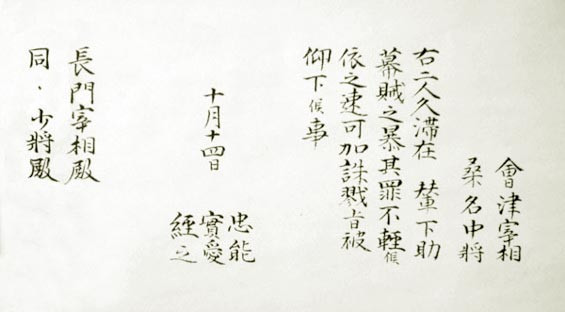 會津宰相
桑名中将
右二人久滞在　輦下助
幕賊之暴其罪不輕候
依之速可加誅戮旨被
仰下候事
十月十四日
忠能
實愛
經之
長門宰相殿
同・少将殿